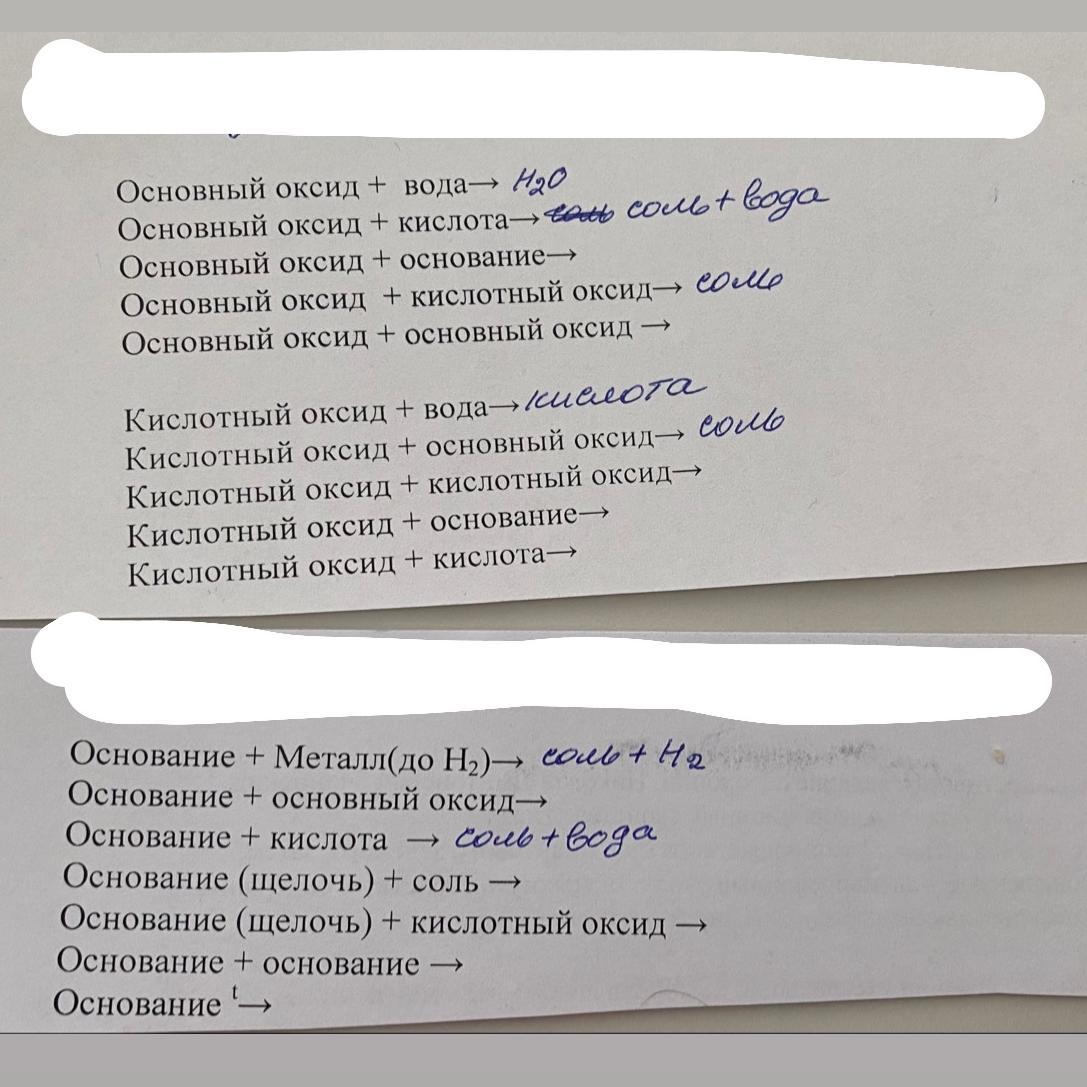 Основный оксид + вода→ H₂O
Основный оксид + кислота→ соль соль + вода
Основный оксид + основание→
Основный оксид + кислотный оксид→ соль
Основный оксид + основный оксид →
Кислотный оксид + вода→ кислота
Кислотный оксид + основный оксид→ соль
Кислотный оксид + кислотный оксид→
Кислотный оксид + основание→
Кислотный оксид + кислота→
Основание + Металл(до H₂)→ соль + H₂
Основание + основный оксид→
Основание + кислота → соль + вода
Основание (щелочь) + соль →
Основание (щелочь) + кислотный оксид →
Основание + основание →
Основание ᵗ→